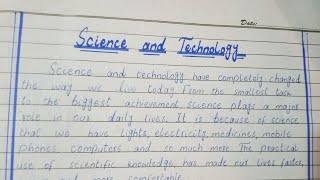 Date
Science and Technology
Science and technology have completely changed
the way we live today. From the smallest task
to the biggest achievement science plays a major
role in our daily lives. It is because of science
that we have lights, electricity, medicines, mobile
phones, computers and so much more The practical
use of scientific knowledge, has made our lives faster,
and more comfortable.